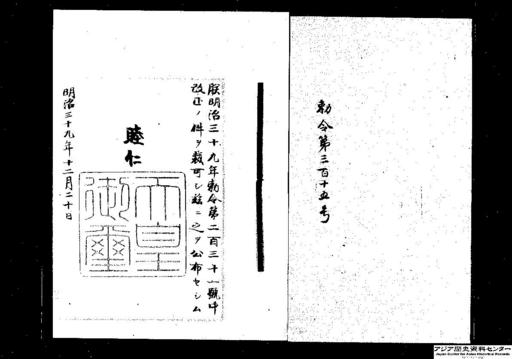 勅令第三百十五号
朕明治三十九年勅令第二百三十一號中
改正ノ件ヲ裁可シ茲ニ之ヲ公布セシム
睦仁
天皇
御璽
明治三十九年十二月二十日
アジア歴史資料センター
Japan Center for Asian Historical Records